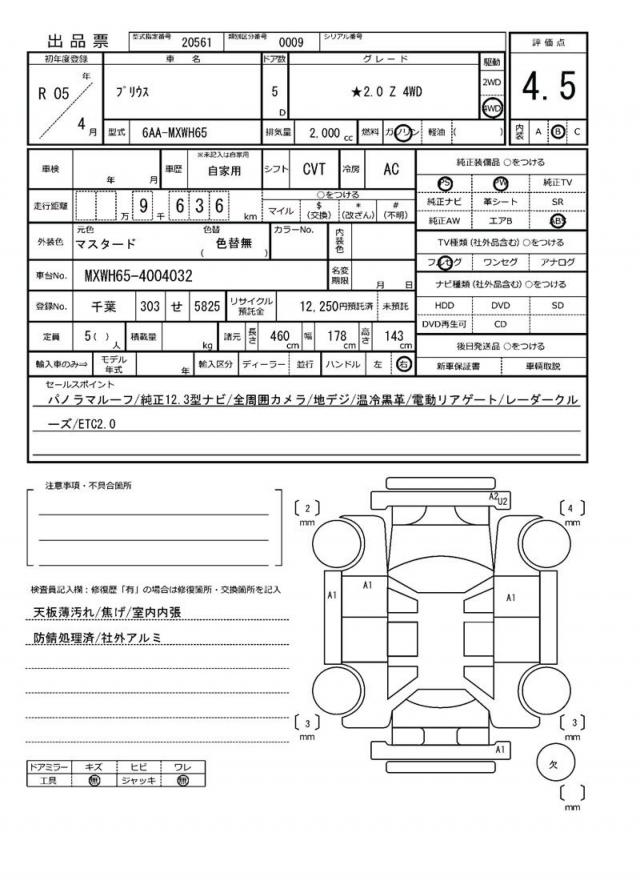 出品票 型式指定番号 20561 類別区分番号 0009 シリアル番号
初年度登録 車名 ドア数 グレード 駆動 評価点
R 05 年 4 月 プリウス 5 D ★2.0 Z 4WD 2WD 4WD 4.5
型式 6AA-MXWH65 排気量 2,000 cc 燃料 ガソリン 軽油 ( ) 内装 A B C
車検 年 月 車歴 ※未記入は自家用 自家用 シフト CVT 冷房 AC
走行距離 万 9 千 6 3 6 km ○をつける マイル $ (交換) * (改ざん) # (不明)
外装色 元色 マスタード 色替 ( 色替無 ) カラーNo. 内装色
車台No. MXWH65-4004032 名変期限 月 日
登録No. 千葉 303 せ 5825 リサイクル預託金 12,250円預託済 未預託
定員 5 ( ) 人 積載量 kg 諸元 長さ 460 cm 幅 178 cm 高さ 143 cm
輸入車のみ⇒ モデル年式 年 輸入区分 ディーラー 並行 ハンドル 左 右
純正装備品 ○をつける
PS PW 純正TV
純正ナビ 革シート SR
純正AW エアB ABS
TV種類 (社外品含む) ○をつける
フルセグ ワンセグ アナログ
ナビ種類 (社外品含む) ○をつける
HDD DVD SD
DVD再生可 CD
後日発送品 ○をつける
新車保証書 車輌取説
セールスポイント
パノラマルーフ/純正12.3型ナビ/全周囲カメラ/地デジ/温冷黒革/電動リアゲート/レーダークル
ーズ/ETC2.0
注意事項・不具合箇所
検査員記入欄:修復歴「有」の場合は修復箇所・交換箇所を記入
天板薄汚れ/焦げ/室内内張
防錆処理済/社外アルミ
ドアミラー キズ ヒビ ワレ
工具 無 ジャッキ 無
A2 U2
[ 2 ] mm [ 4 ] mm
A1 A1 A1 A1
[ 3 ] mm [ 3 ] mm
A1
欠
[ ] mm